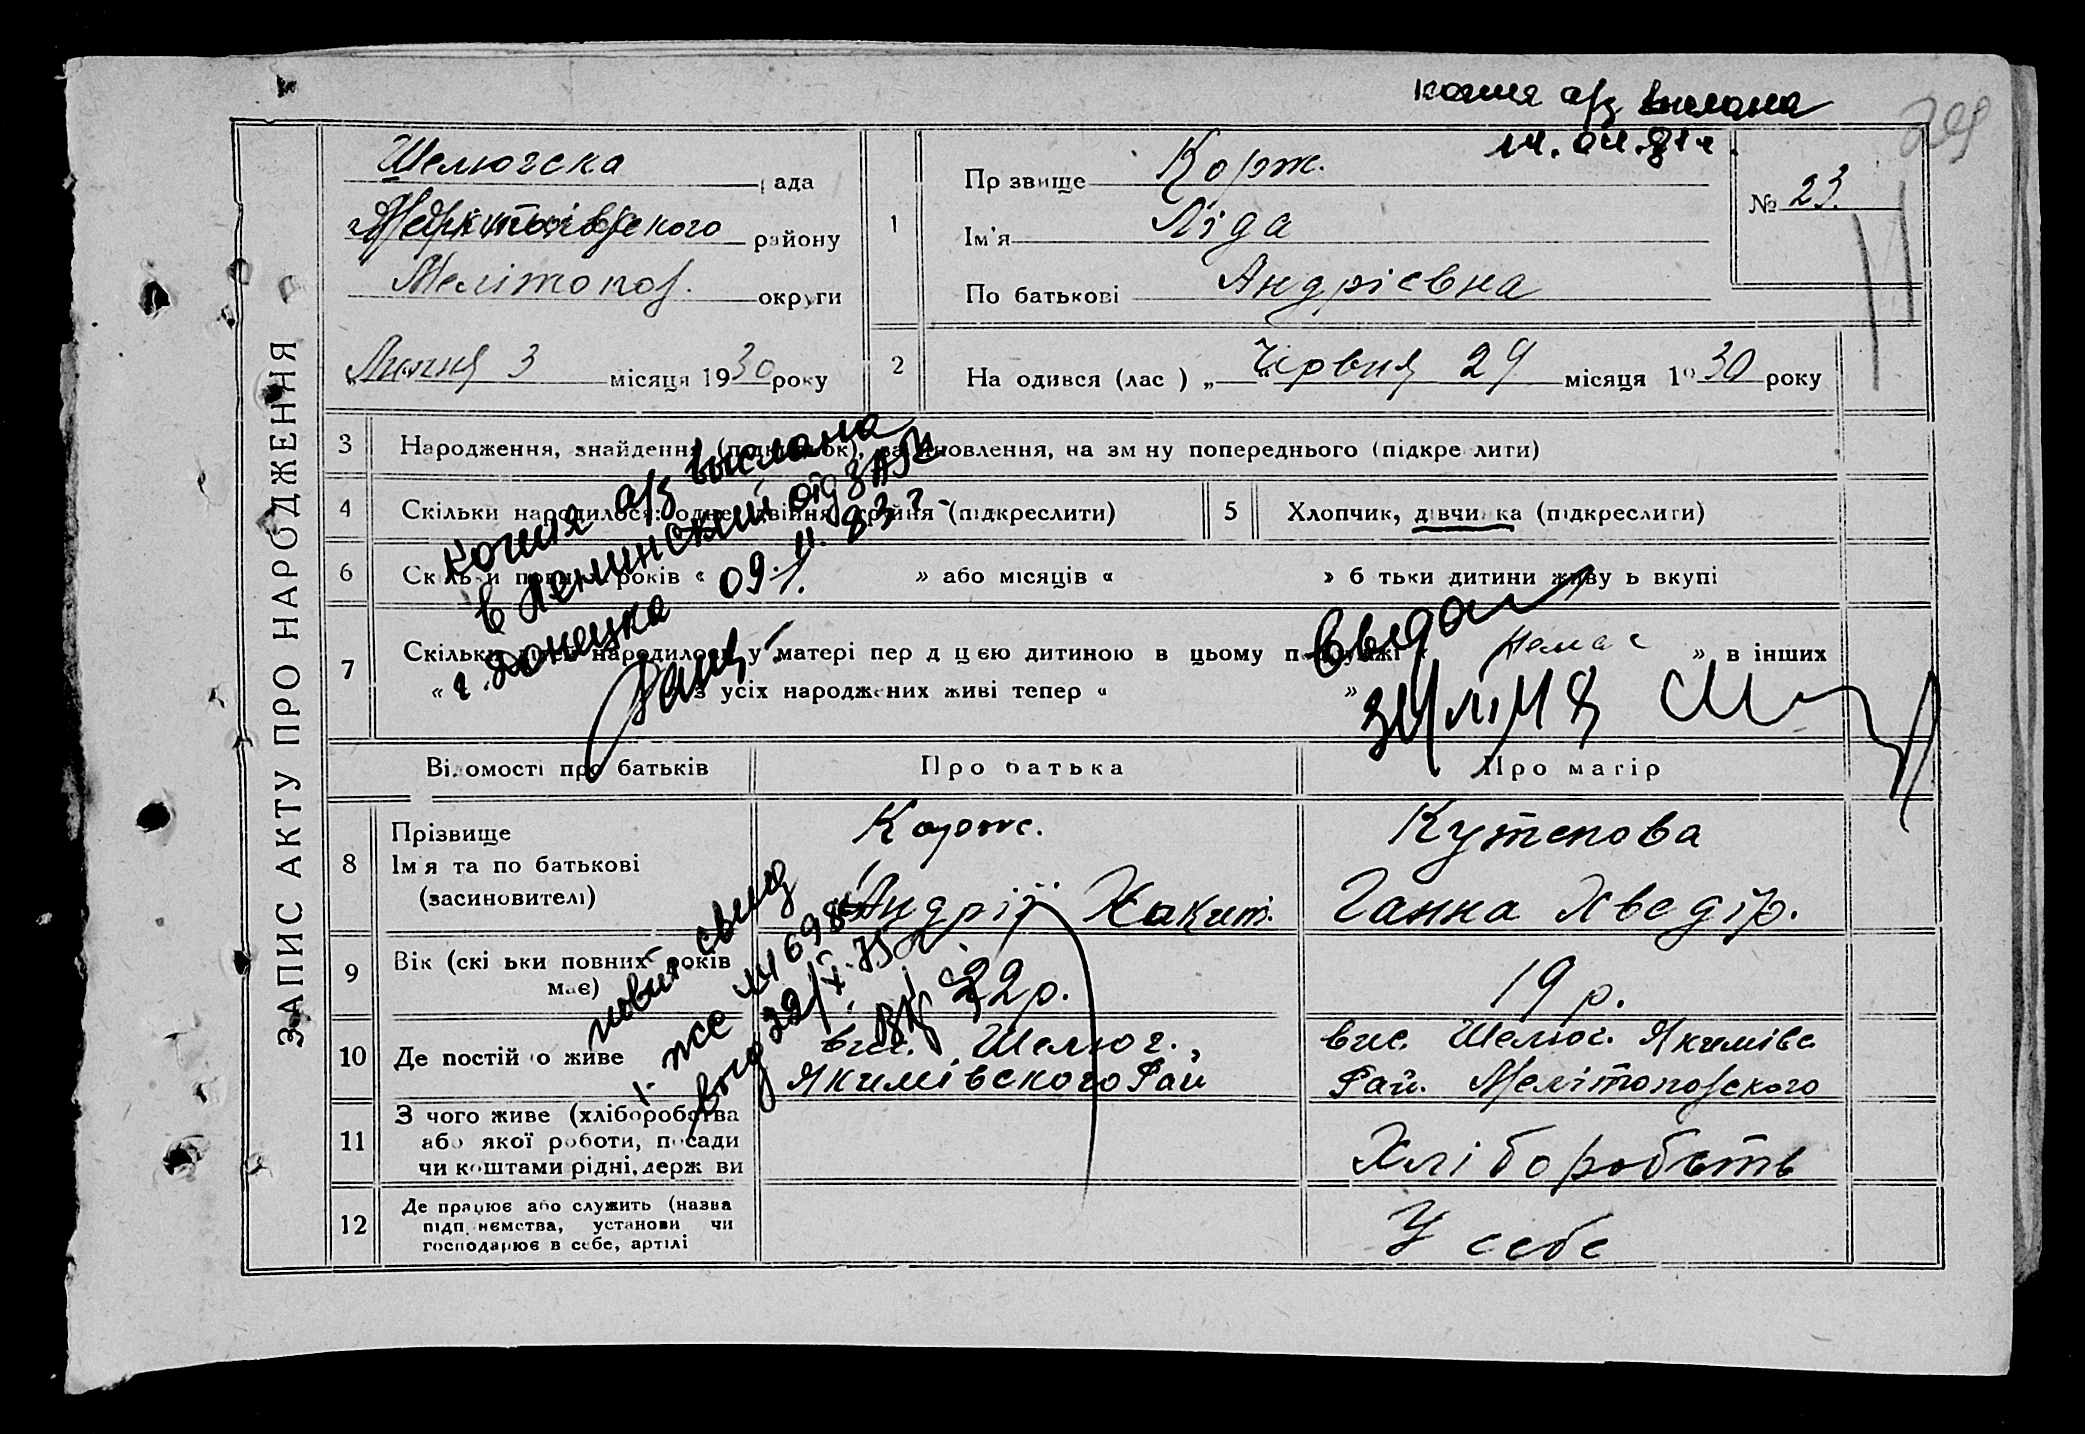 копия а/з выслана
14.04.81 г.
ЗАПИС АКТУ ПРО НАРОДЖЕННЯ
Шелюгска рада
району
Мелітопол. округи
Липня 3 місяця 1930 року
1
Прізвище Корж.
Ім'я Ліда
По батькові Андрієвна
№ 23.
2
Народився (лась) „ Червня 29 місяця 1930 року
3 Народження, знайдення (підкидьок), засиновлення, на зміну попереднього (підкреслити)
4 Скільки народилося: одне, двійня, трійня (підкреслити)
5 Хлопчик, дівчинка (підкреслити)
6 Скільки повних років « » або місяців « » батьки дитини живуть вкупі
7 Скільки дітей народилось у матері перед цією дитиною в цьому подружжі « немає » в інших
« з усіх народжених живі тепер « »
копия а/з выслана
в Ленинский отд ЗАГС
г. Донецка 09.11.83 г.
Відомості про батьків
Про батька
Про матір
8 Прізвище
Ім'я та по батькові
(засиновителі)
Корж.
Андрій
Кутепова
Ганна Хведір.
9 Вік (скільки повних років
має)
22 р.
19 р.
10 Де постійно живе
вис. Шелюг.,
Якимівского Рай
вис. Шелюг. Якимівс.
Рай. Мелітопольского
11 З чого живе (хліборобства
або якої роботи, посади
чи коштами рідні, держави
Хліборобств
12 Де працює або служить (назва
підприємства, установи чи
господарює в себе, артілі
У себе